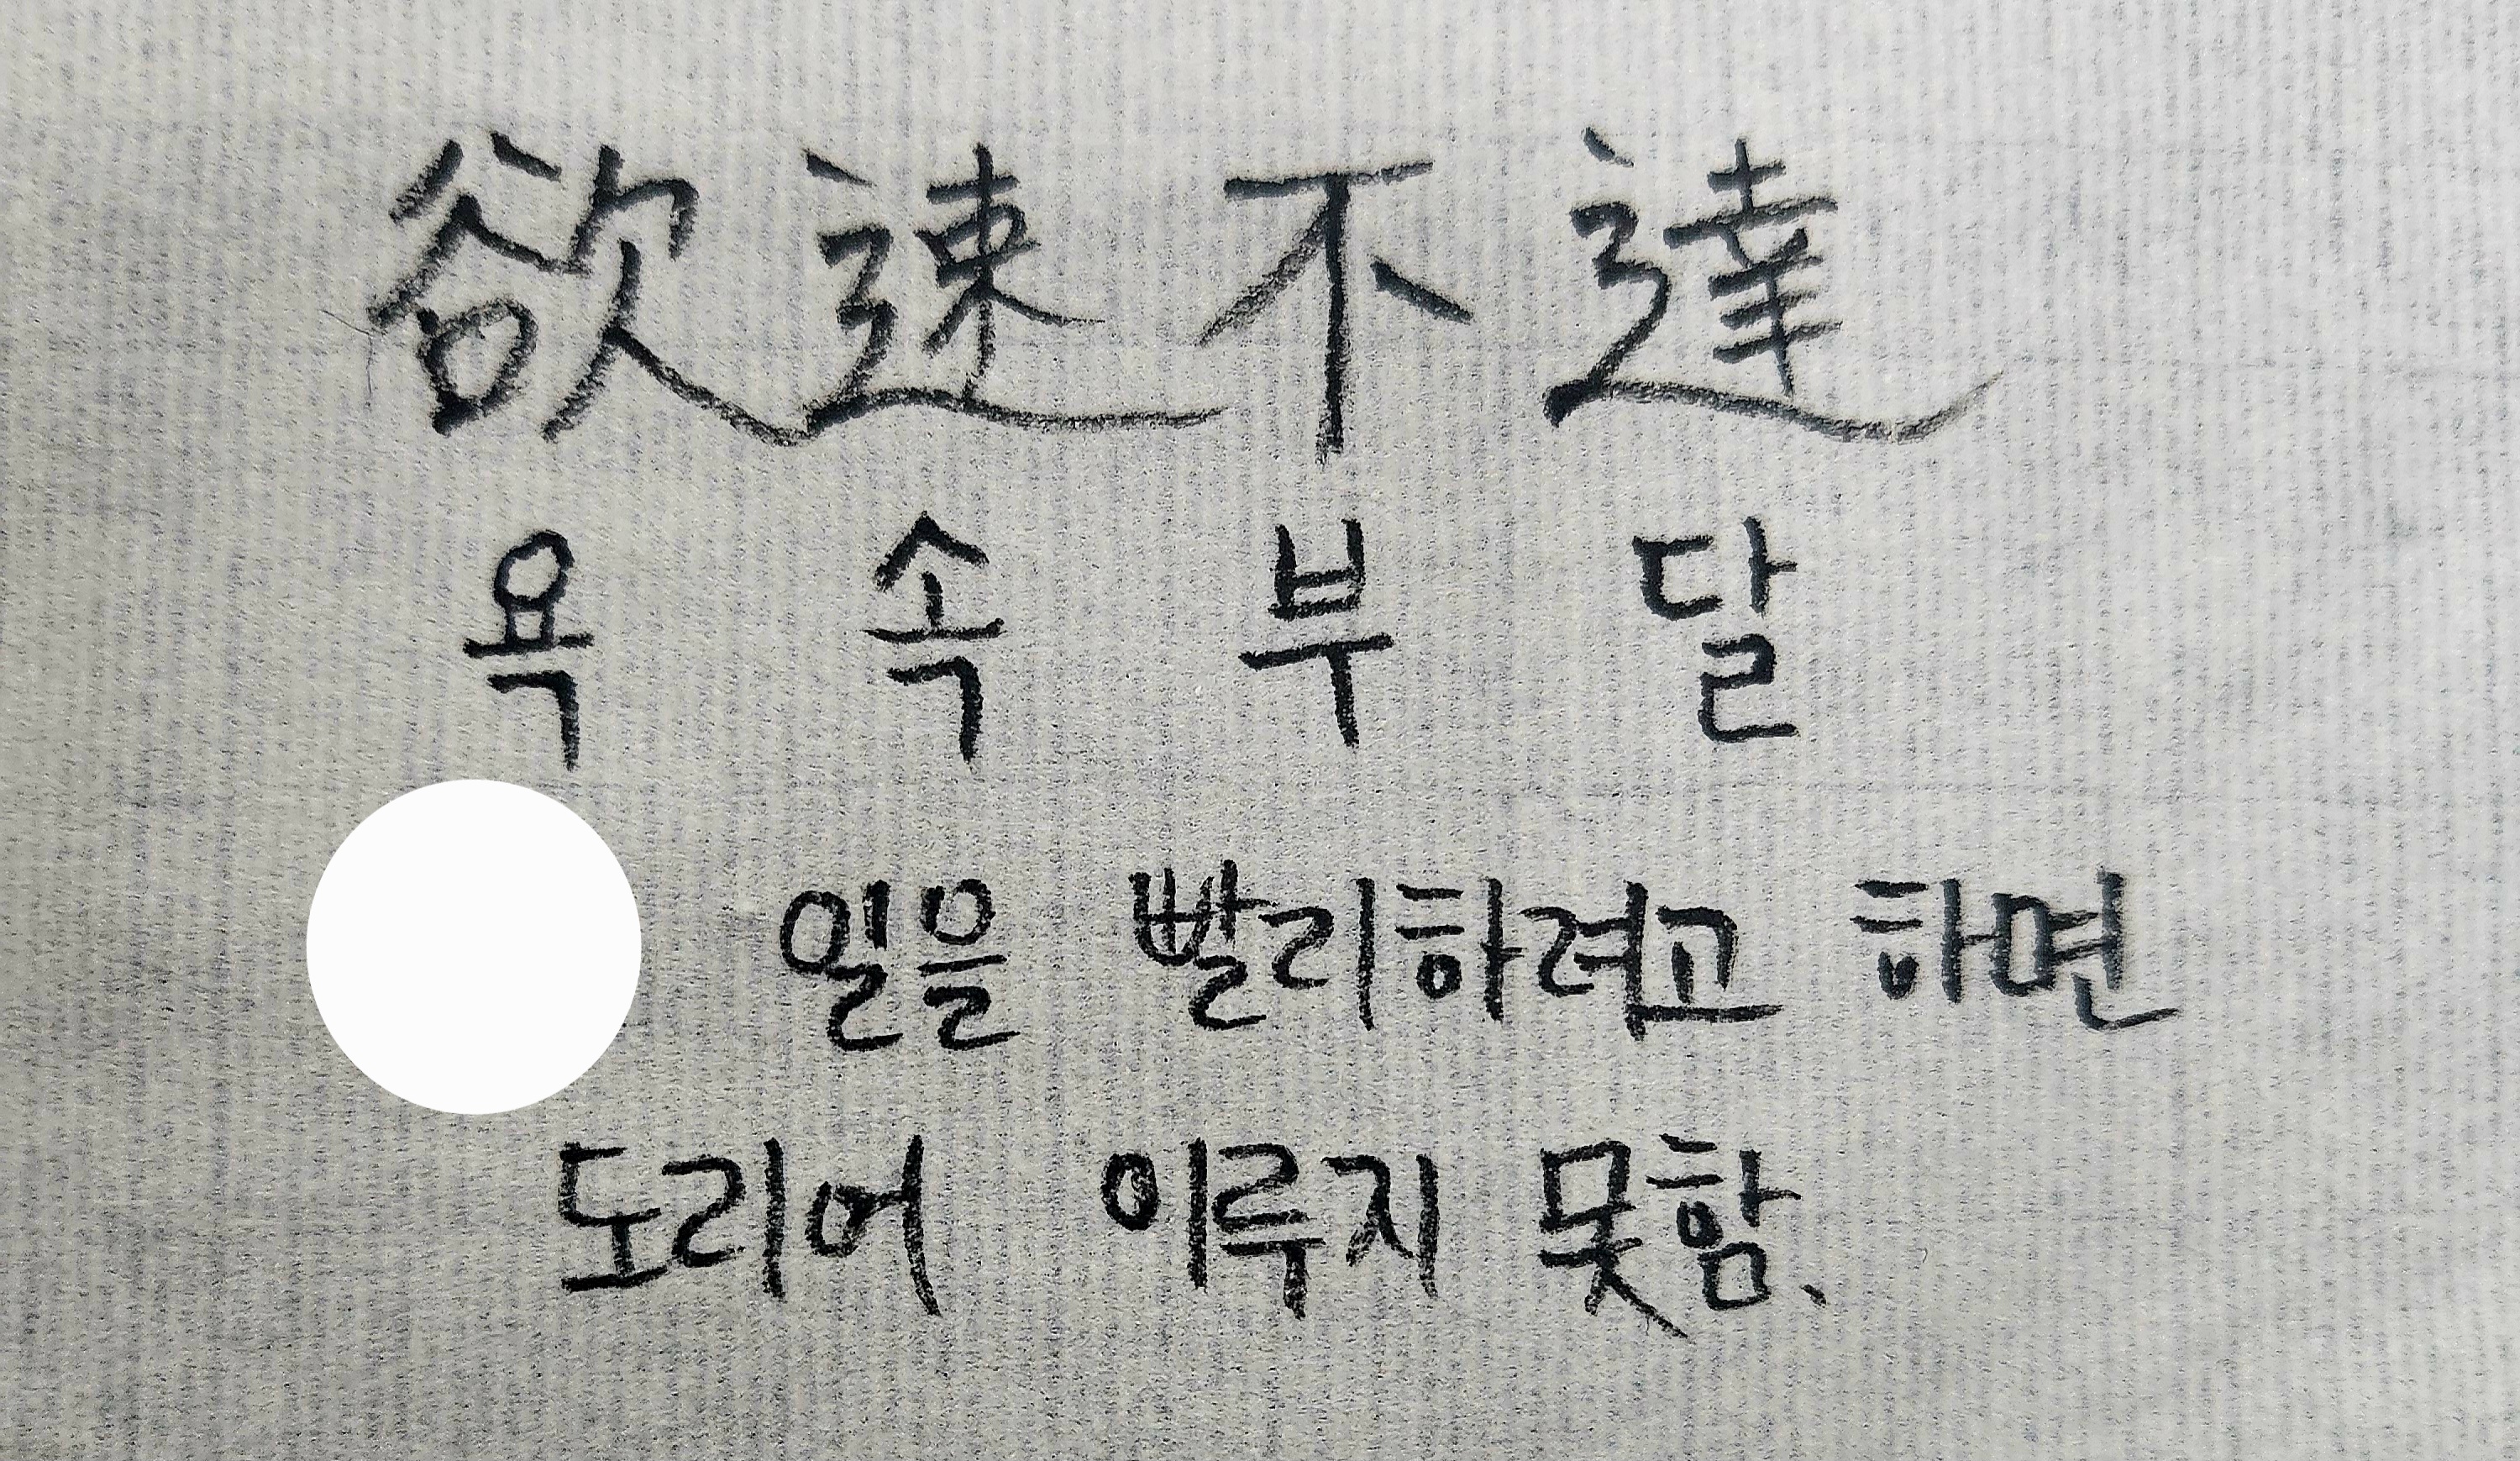 欲速不達
욕 속 부 달
일을 빨리하려고 하면
도리어 이루지 못함.